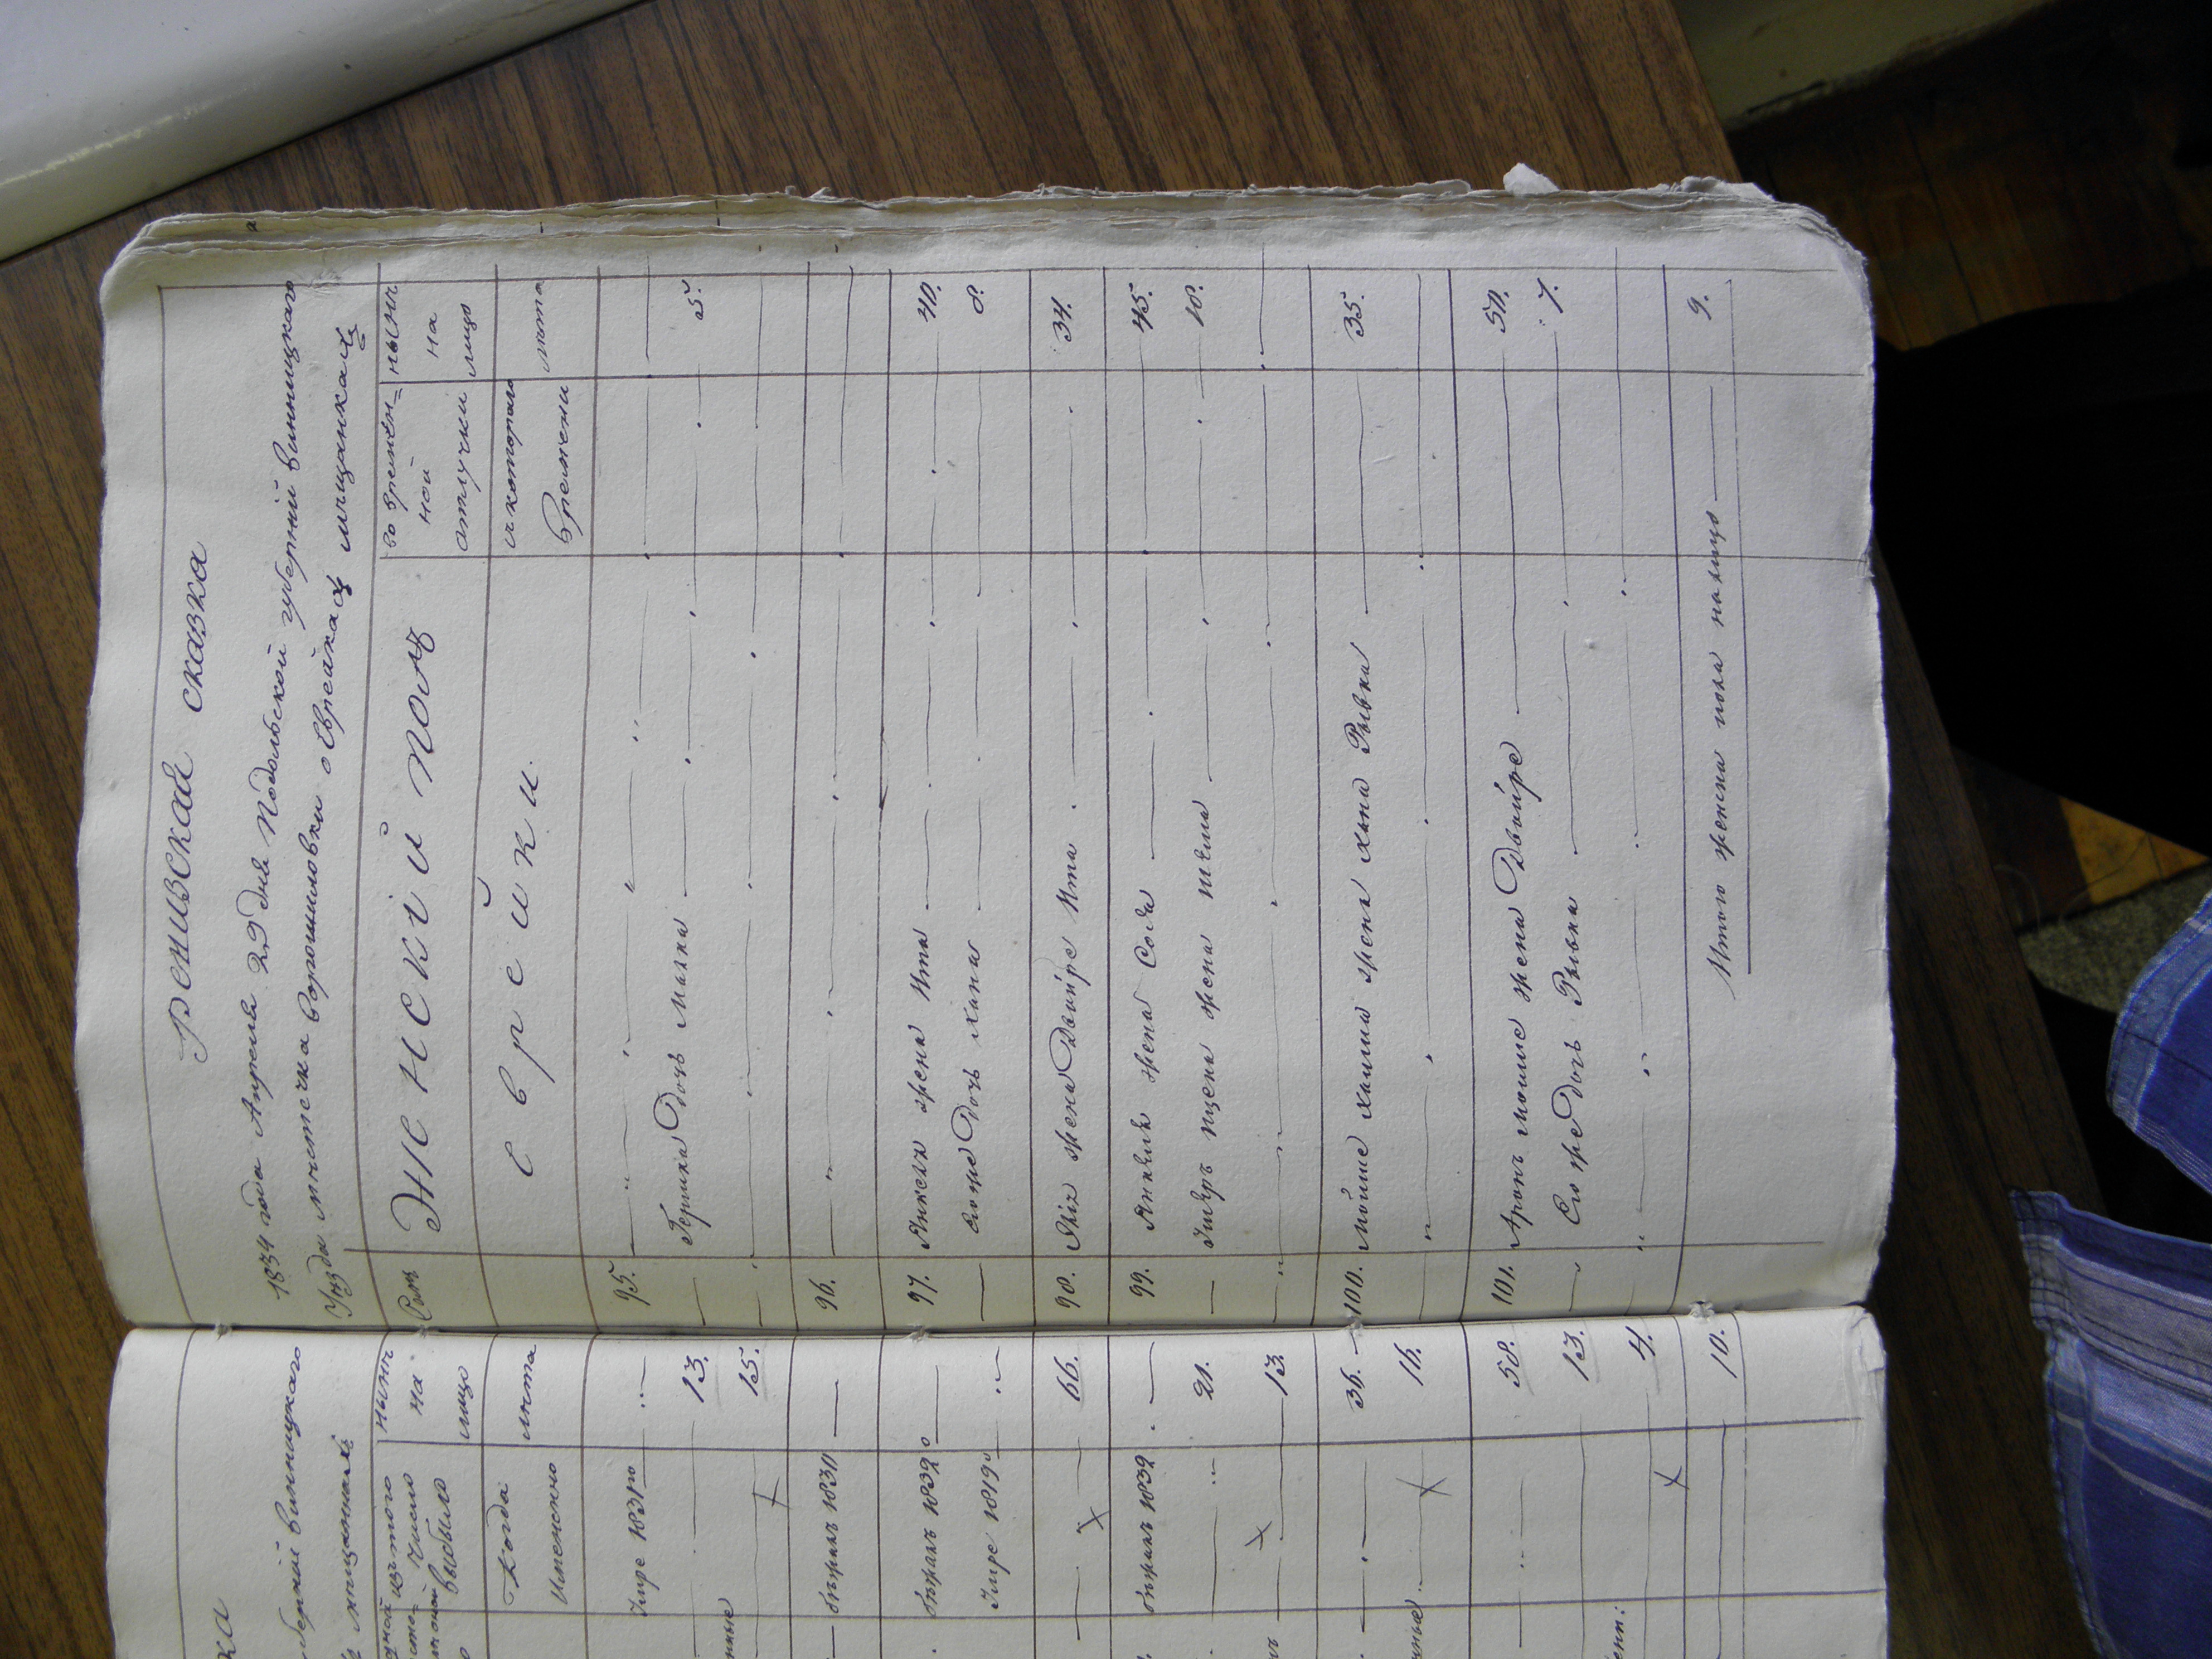 Ревизская сказка
1834 года Апреля 29 дня Подольской губернии Винницкого
Уезда местечка Ворошиловки о Еврейкахъ мещанкахъ
Женскій полъ
во времен=
ной
отлучки
ныне
на
лицо
Еврейки.
съ которого
времени
лета
95.
Гершка Дочь Малка 5.
96.
97. Янкеля жена Ита 40.
Его же Дочь Хана 8.
98. жена Двойре Ита 34.
99. жена Сося 45.
жена 18.
100. Мойше Хаима жена Хана Рывка 35.
101. Аронъ Мошие жена Двойре 50.
Его же Дочь Рывка 7.
Итого женска пола налицо 9.
ка
губерніи Винницкого
мещанахъ
изъ того
число
выбыло
ныне
на
лицо
Когда
Именно
лета
Умре 1831го
13.
15.
бежалъ 1830
бежалъ 1832
Умре 1819го
66.
бежалъ 1832
21.
13.
36.
16.
58.
13.
4.
10.